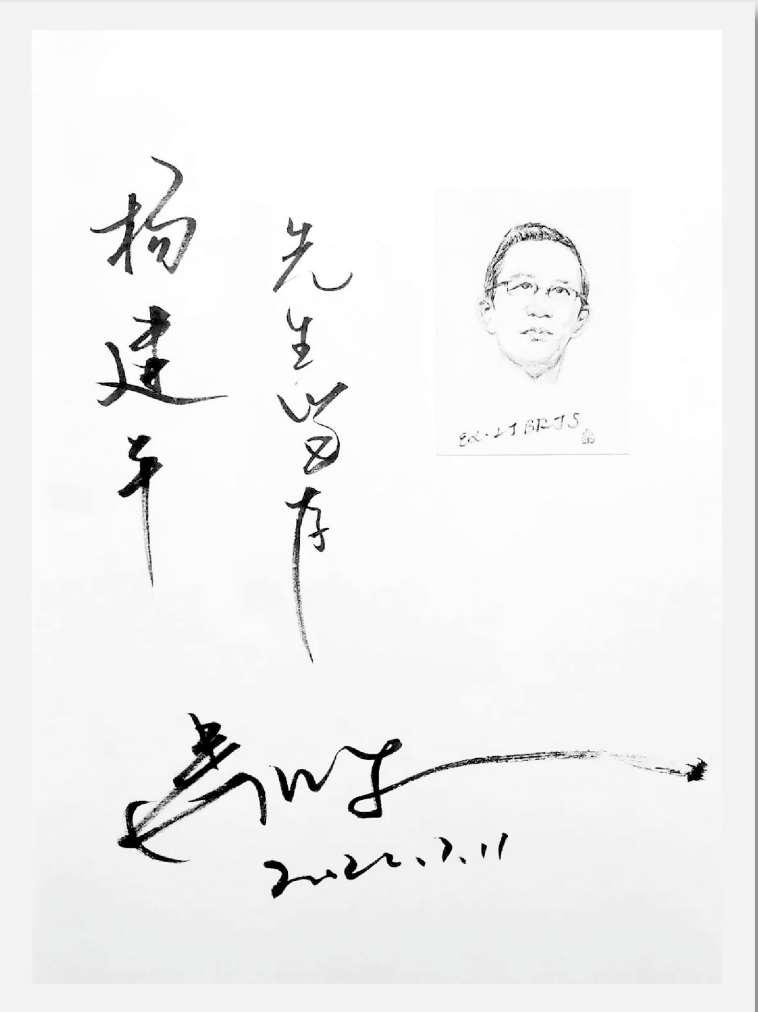 杨建平
先生留存
EX·LIBRIS
2022.7.11